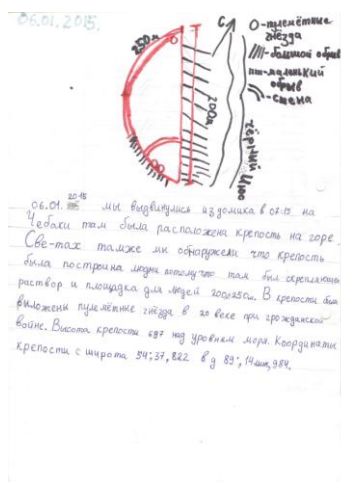 06.01.2015.
250м
С
200м
Чёрный Июс
О-пулемётные
гнёзда
-большой обрыв
-маленький
обрыв
-стена
06.01.2015 мы выдвинулись из домика в 07:15 на
Чебаки там была расположена крепость на горе
Све-тах также ми обнаружели что крепость
была построина людми потому что там был скрепляющий
раствор и площадка для людей 200х250м. В крепости были
выложены пулемётные гнёзда в 20 веке при грожданской
войне. Высота крепости 697 над уровням моря. Координаты
крепости с широта 54°,37,822 в д 89°,14мин,984.